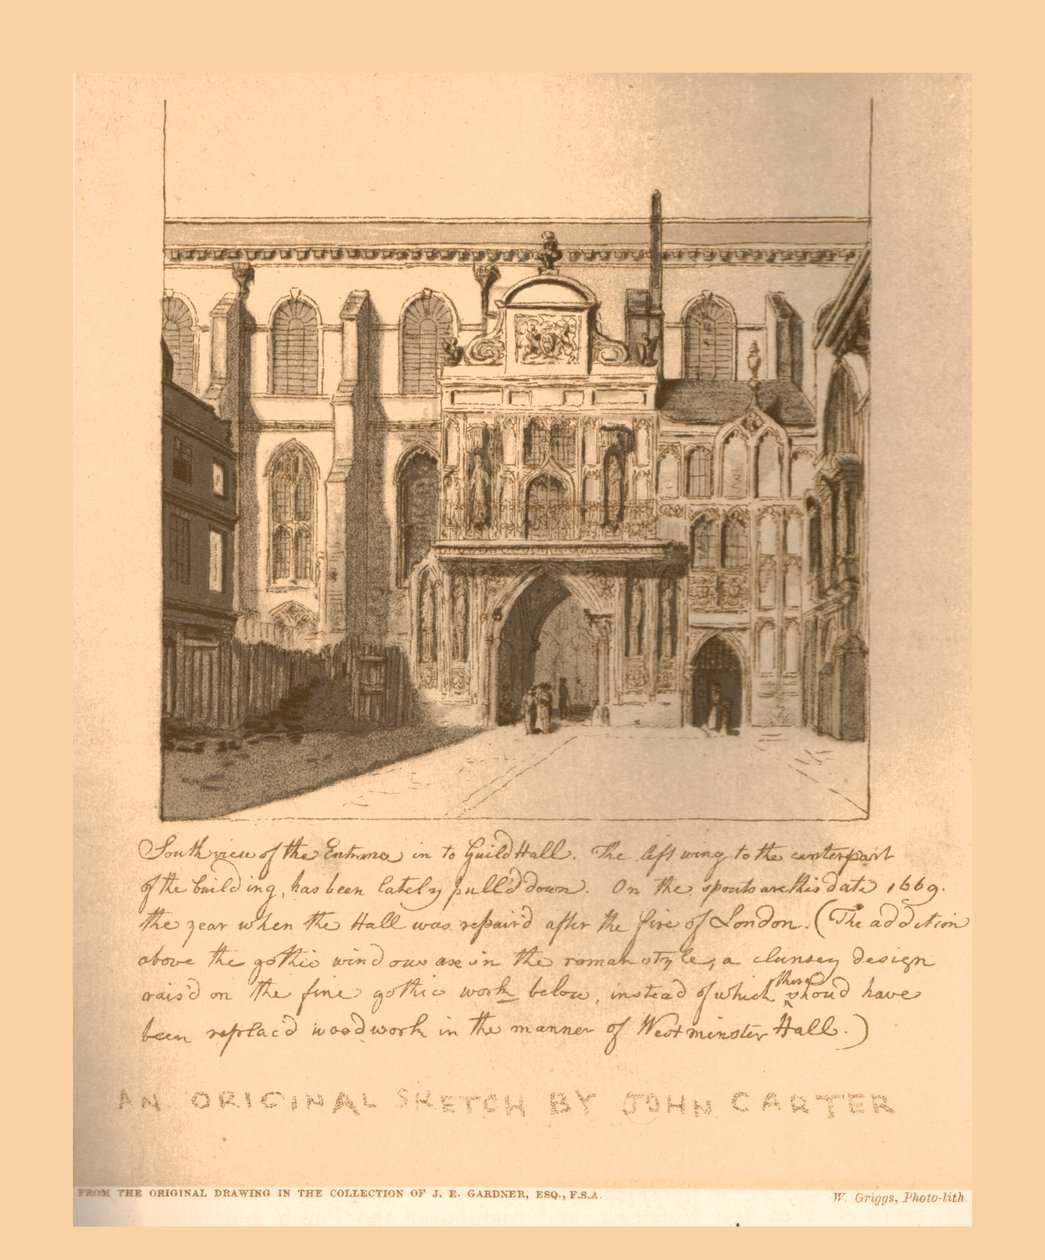 South view of the Entrance in to Guild Hall. The left wing to the centerpart
of the building, has been lately pull'd down. On the spouts are this date 1669.
the year when the Hall was repair'd after the fire of London. (The addition
above the gothic windows are in the roman style, a clumsey design
rais'd on the fine gothic work below, instead of which there shou'd have
been replac'd wood work in the manner of Westminster Hall.)
AN ORIGINAL SKETCH BY JOHN CARTER
FROM THE ORIGINAL DRAWING IN THE COLLECTION OF J. E. GARDNER, ESQ., F.S.A.
W. Griggs, Photo-lith.